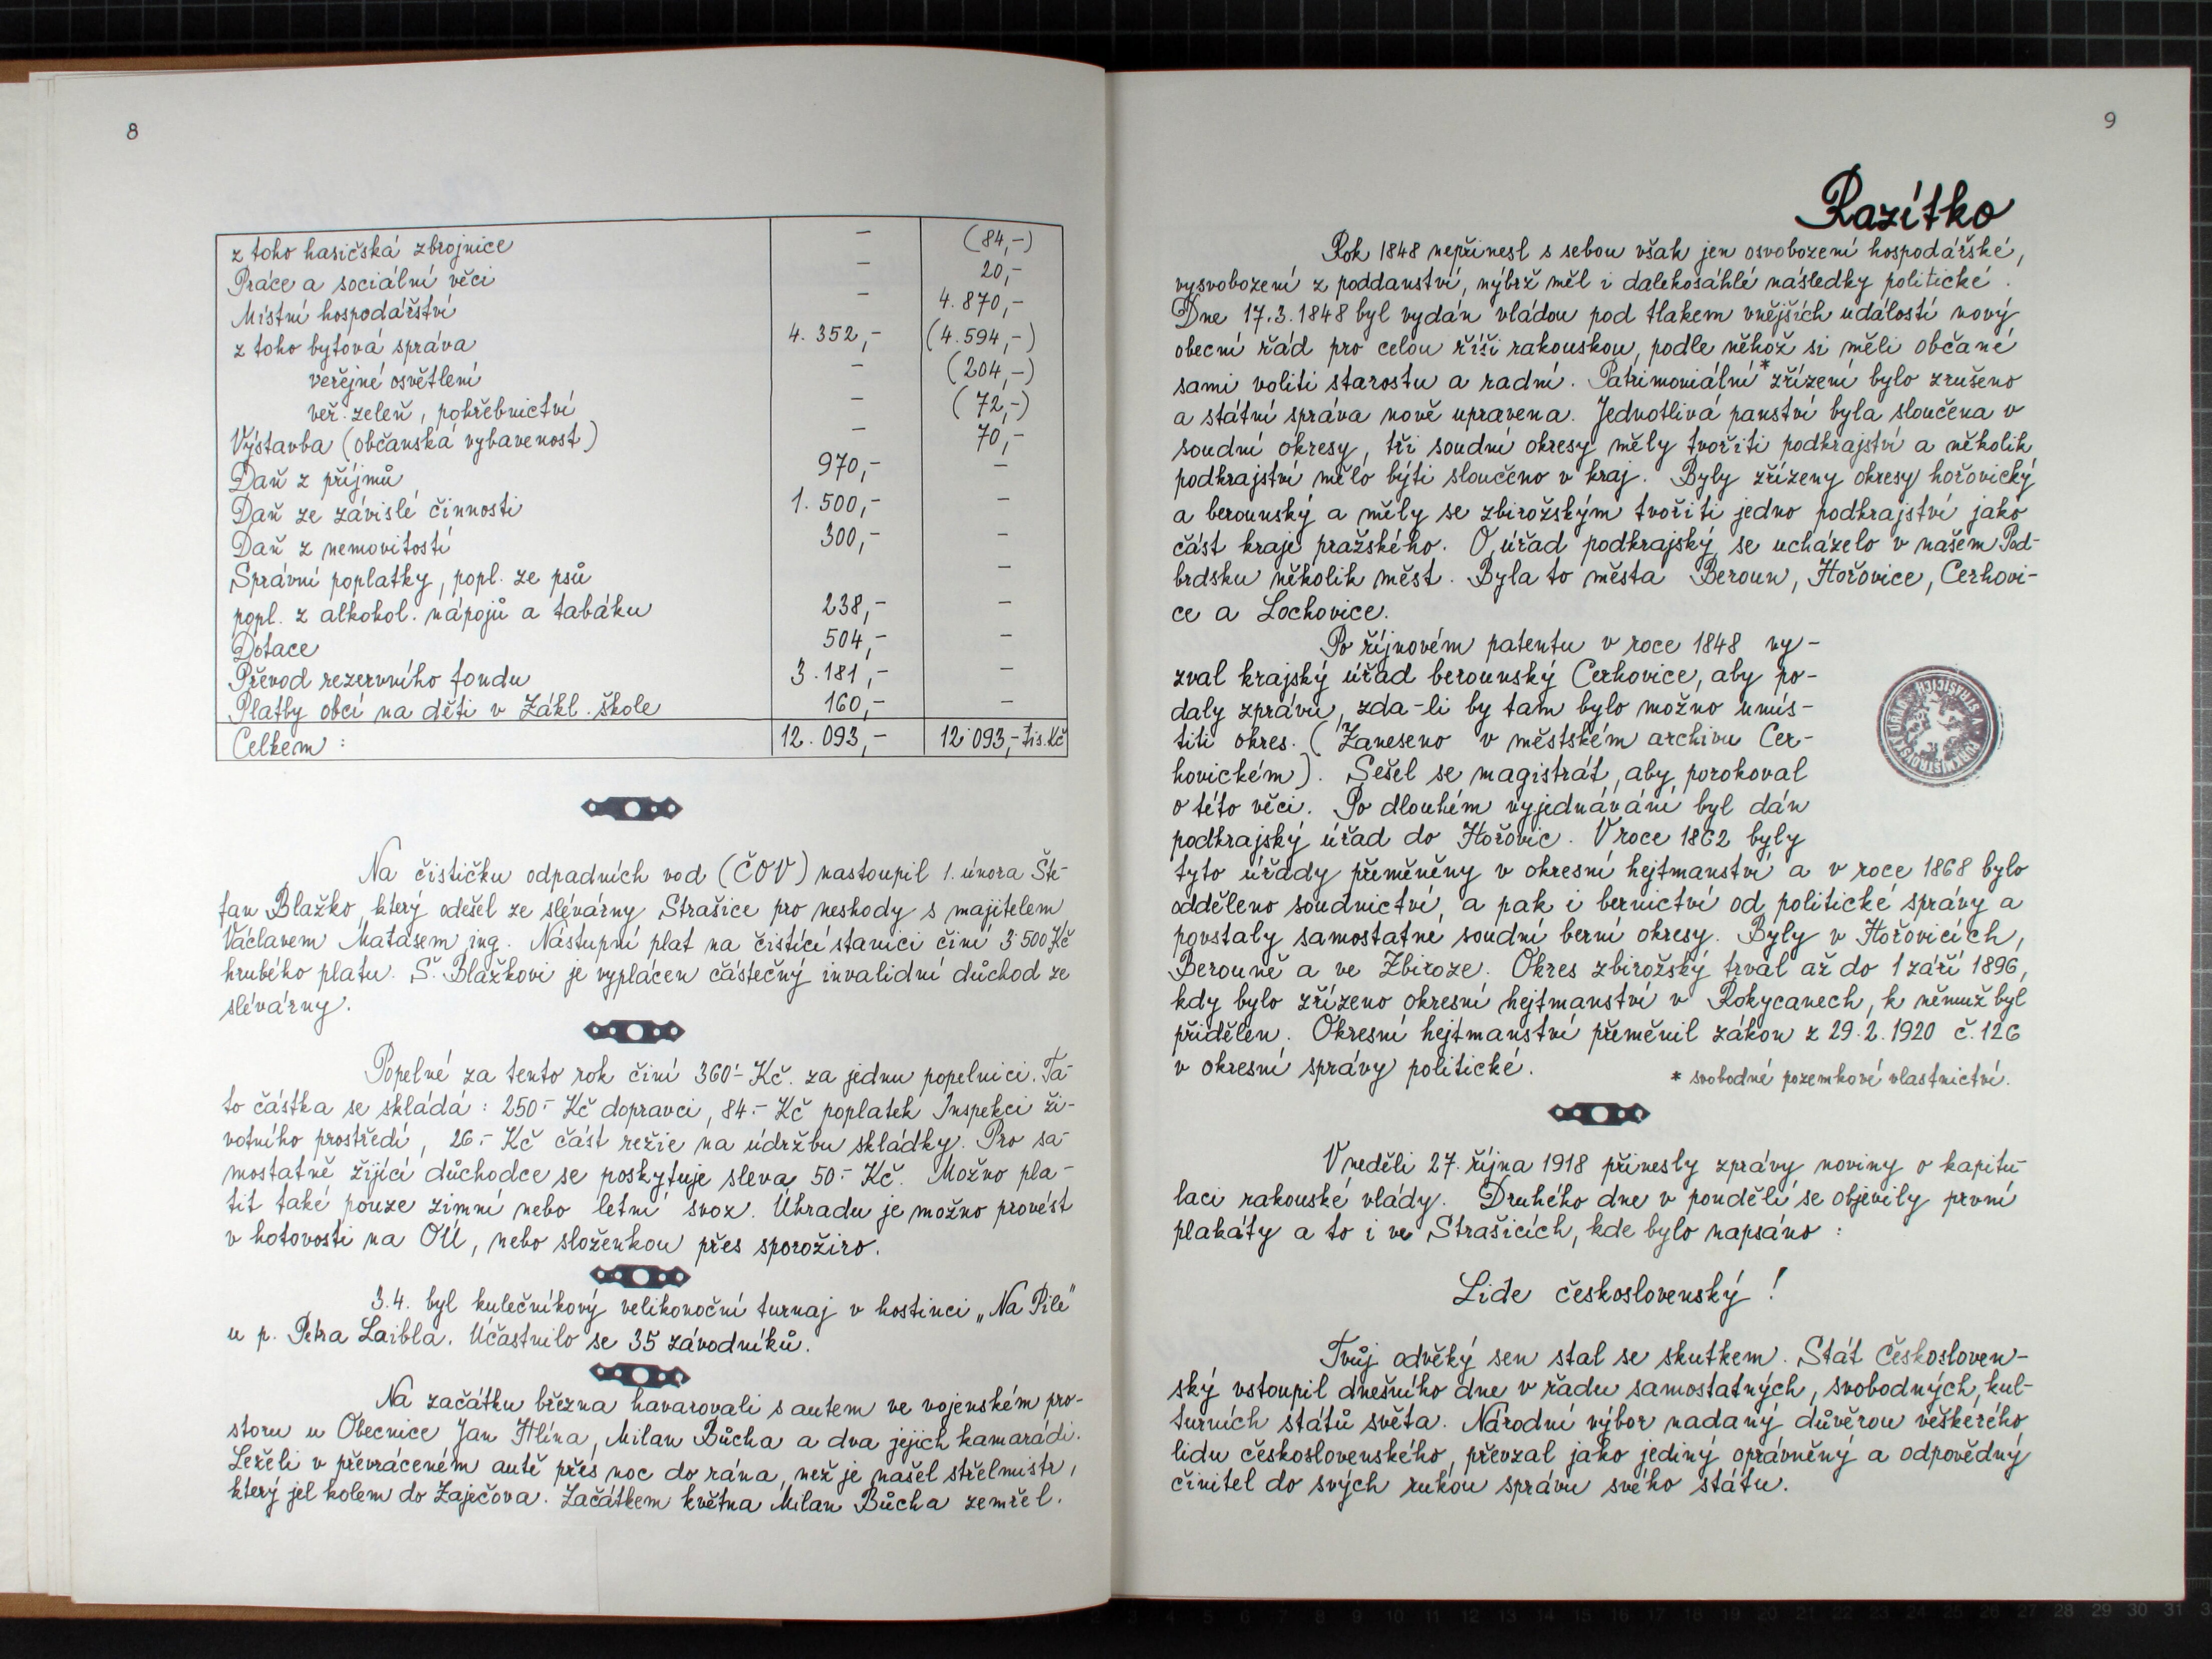 8
z toho hasičská zbrojnice – (84,-)
Práce a sociální věci – 20,-
Místní hospodářství – 4.870,-
z toho bytová správa 4.352,- (4.594,-)
veřejné osvětlení – (204,-)
veř. zeleň, pohřebnictví – (72,-)
Výstavba (občanská vybavenost) – 70,-
Daň z příjmů 970,- –
Daň ze závislé činnosti 1.500,- –
Daň z nemovitostí 300,- –
Správní poplatky, popl. ze psů –
popl. z alkohol. nápojů a tabáku 238,- –
Dotace 504,- –
Převod rezervního fondu 3.181,- –
Platby obcí na děti v Zákl. škole 160,- –
Celkem : 12.093,- 12.093,- tis.Kč
Na čističku odpadních vod (ČOV) nastoupil 1. února Šte-
fan Blažko, který odešel ze slévárny Strašice pro neshody s majitelem
Václavem Matasem ing. Nástupní plat na čistící stanici činí 3.500 Kč
hrubého platu. Š. Blažkovi je vyplácen částečný invalidní důchod ze
slévárny.
Popelné za tento rok činí 360.- Kč. za jednu popelnici. Ta-
to částka se skládá : 250.- Kč dopravci, 84.- Kč poplatek Inspekci ži-
votního prostředí, 26.- Kč část režie na údržbu skládky. Pro sa-
mostatně žijící důchodce se poskytuje sleva 50.- Kč. Možno pla-
tit také pouze zimní nebo letní svoz. Úhradu je možno provést
v hotovosti na OÚ, nebo složenkou přes sporožiro.
3.4. byl kulečníkový velikonoční turnaj v hostinci „Na Pile"
u p. Petra Laibla. Účastnilo se 35 závodníků.
Na začátku března havarovali s autem ve vojenském pro-
storu u Obecnice Jan Hlína, Milan Bůcha a dva jejich kamarádi.
Leželi v převráceném autě přes noc do rána, než je našel střelmistr,
který jel kolem do Zaječova. Začátkem května Milan Bůcha zemřel.
9
Razítko
Rok 1848 nepřinesl s sebou však jen osvobození hospodářské,
vysvobození z poddanství, nýbrž měl i dalekosáhlé následky politické.
Dne 17.3.1848 byl vydán vládou pod tlakem vnějších událostí nový
obecní řád pro celou říši rakouskou, podle něhož si měli občané
sami voliti starostu a radní. Patrimoniální* zřízení bylo zrušeno
a státní správa nově upravena. Jednotlivá panství byla sloučena v
soudní okresy, tři soudní okresy měly tvořiti podkrajství a několik
podkrajství mělo býti sloučeno v kraj. Byly zřízeny okresy hořovický
a berounský a měly se zbirožským tvořiti jedno podkrajství jako
část kraje pražského. O úřad podkrajský se ucházelo v našem Pod-
brdsku několik měst. Byla to města Beroun, Hořovice, Cerhovi-
ce a Lochovice.
Po říjnovém patentu v roce 1848 vy-
zval krajský úřad berounský Cerhovice, aby po-
daly zprávu, zda-li by tam bylo možno umís-
titi okres. (Zaneseno v městském archivu Cer-
hovickém). Sešel se magistrát, aby porokoval
o této věci. Po dlouhém vyjednávání byl dán
podkrajský úřad do Hořovic. V roce 1862 byly
tyto úřady přeměněny v okresní hejtmanství a v roce 1868 bylo
odděleno soudnictví, a pak i bernictví od politické správy a
povstaly samostatné soudní berní okresy. Byly v Hořovicích,
Berouně a ve Zbiroze. Okres zbirožský trval až do 1 září 1896,
kdy bylo zřízeno okresní hejtmanství v Rokycanech, k němuž byl
přidělen. Okresní hejtmanství přeměnil zákon z 29.2.1920 č.126
v okresní správy politické.
* svobodné pozemkové vlastnictví.
V neděli 27. října 1918 přinesly zprávy noviny o kapitu-
laci rakouské vlády. Druhého dne v pondělí se objevily první
plakáty a to i ve Strašicích, kde bylo napsáno :
Lide československý !
Tvůj odvěký sen stal se skutkem. Stát Českosloven-
ský vstoupil dnešního dne v řadu samostatných, svobodných, kul-
turních států světa. Národní výbor nadaný důvěrou veškerého
lidu československého, převzal jako jediný oprávněný a odpovědný
činitel do svých rukou správu svého státu.